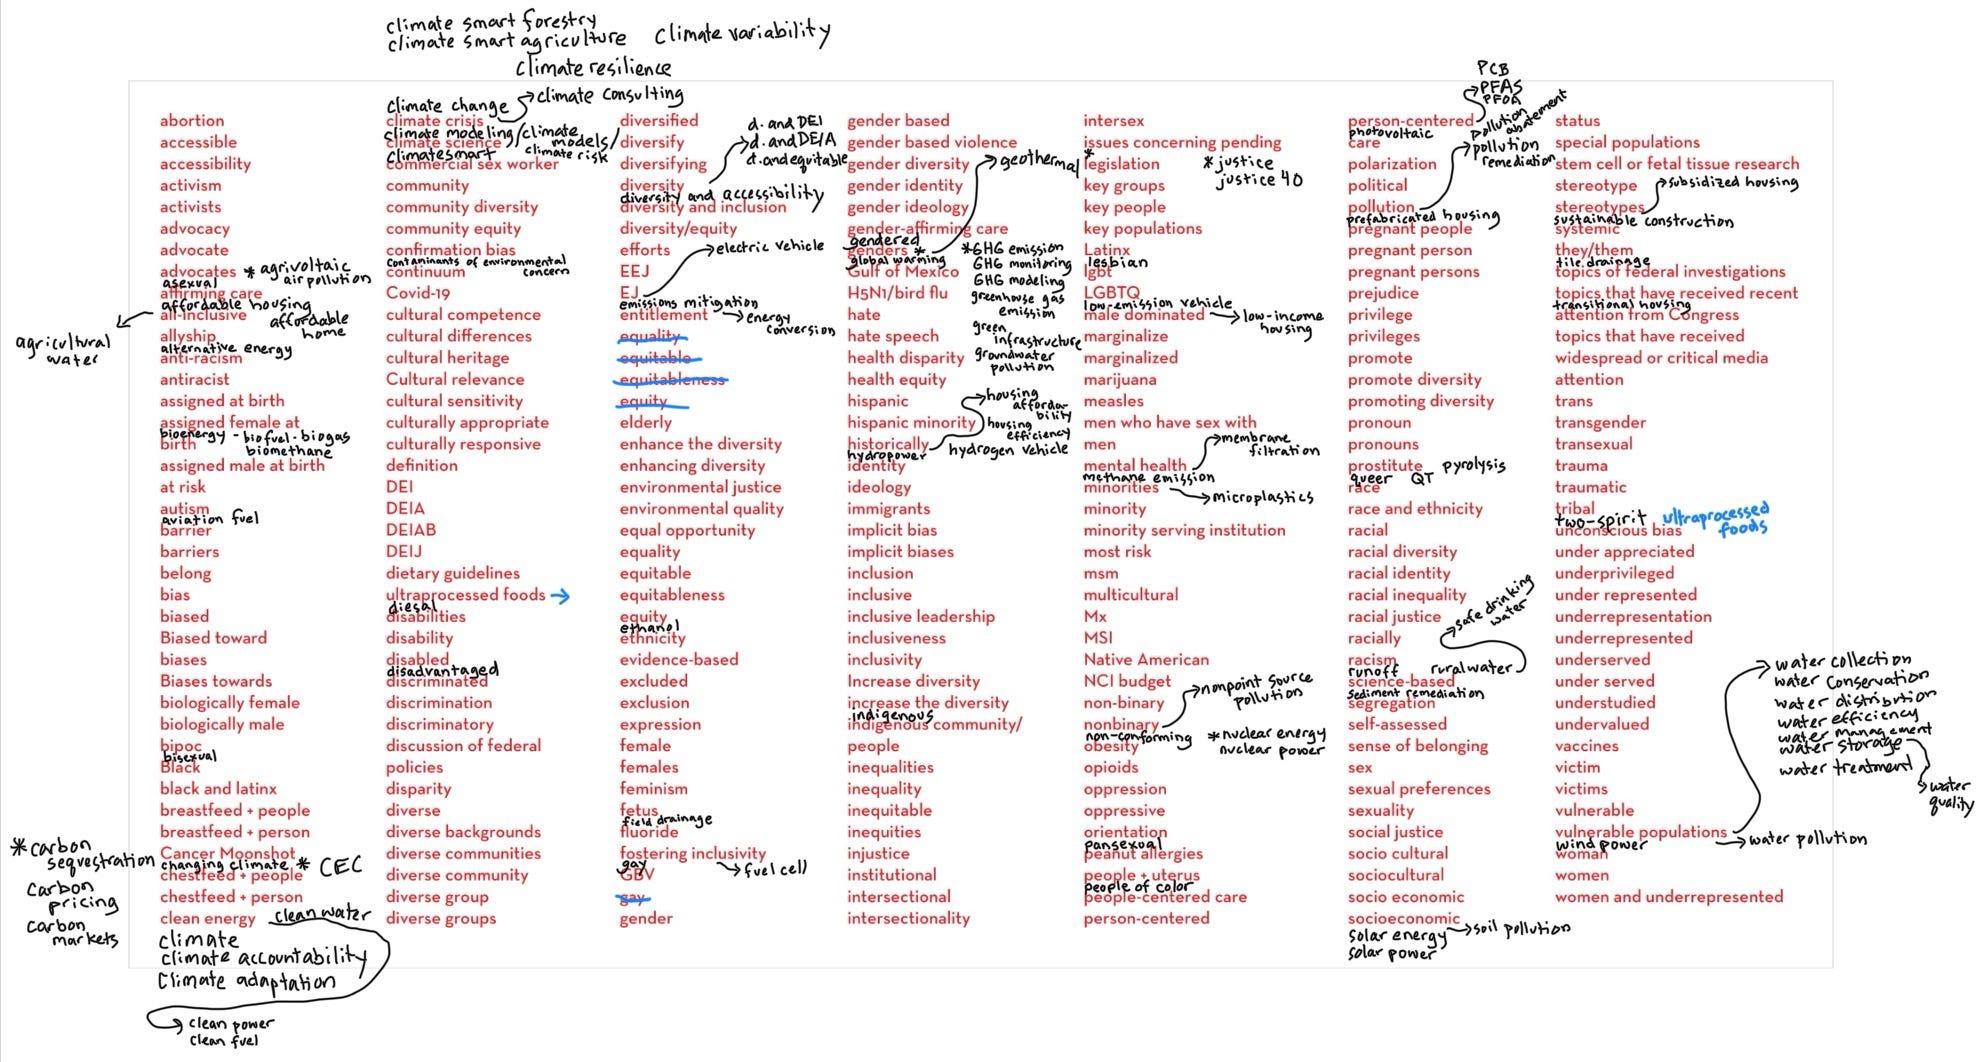 climate smart forestry
climate smart agriculture
climate variability
climate resilience
abortion
accessible
accessibility
activism
activists
advocacy
advocate
advocates * agrivoltaic
air pollution
asexual
affirming care
affordable housing
all-inclusive
affordable
home
agricultural
water
allyship
alternative energy
anti-racism
antiracist
assigned at birth
assigned female at
bioenergy - biofuel - biogas
birth
biomethane
assigned male at birth
at risk
autism
aviation fuel
barrier
barriers
belong
bias
biased
Biased toward
biases
Biases towards
biologically female
biologically male
bipoc
bisexual
Black
black and latinx
breastfeed + people
breastfeed + person
* carbon
sequestration
carbon
pricing
carbon
markets
Cancer Moonshot
changing climate * CEC
chestfeed + people
chestfeed + person
clean energy
clean water
climate
climate accountability
climate adaptation
clean power
clean fuel
climate change
climate consulting
climate crisis
climate modeling / climate
models /
climate science
climate risk
climatesmart
commercial sex worker
community
community diversity
community equity
confirmation bias
contaminants of environmental
concern
continuum
Covid-19
cultural competence
cultural differences
cultural heritage
Cultural relevance
cultural sensitivity
culturally appropriate
culturally responsive
definition
DEI
DEIA
DEIAB
DEIJ
dietary guidelines
ultraprocessed foods
diesal
disabilities
disability
disabled
disadvantaged
discriminated
discrimination
discriminatory
discussion of federal
policies
disparity
diverse
diverse backgrounds
diverse communities
diverse community
diverse group
diverse groups
diversified
diversify
diversifying
diversity
d. and DEI
d. and DEIA
d. and equitable
diversity and accessibility
diversity and inclusion
diversity/equity
efforts
electric vehicle
EEJ
EJ
emissions mitigation
entitlement
energy
conversion
equality
equitable
equitableness
equity
elderly
enhance the diversity
enhancing diversity
environmental justice
environmental quality
equal opportunity
equality
equitable
equitableness
equity
ethanol
ethnicity
evidence-based
excluded
exclusion
expression
female
females
feminism
fetus
field drainage
fluoride
fostering inclusivity
fuel cell
gay
GBV
gay
gender
gender based
gender based violence
gender diversity
geothermal
gender identity
gender ideology
gender-affirming care
gendered
genders *
*GHG emission
GHG monitoring
GHG modeling
greenhouse gas
emission
green
infrastructure
groundwater
pollution
global warming
Gulf of Mexico
H5N1/bird flu
hate
hate speech
health disparity
health equity
hispanic
hispanic minority
historically
housing
afforda-
bility
housing
efficiency
hydrogen vehicle
hydropower
identity
ideology
immigrants
implicit bias
implicit biases
inclusion
inclusive
inclusive leadership
inclusiveness
inclusivity
Increase diversity
increase the diversity
indigenous
indigenous community/
people
inequalities
inequality
inequitable
inequities
injustice
institutional
intersectional
intersectionality
intersex
issues concerning pending
*
legislation
* justice
justice 40
key groups
key people
key populations
Latinx
lesbian
lgbt
LGBTQ
low-emission vehicle
male dominated
low-income
housing
marginalize
marginalized
marijuana
measles
men who have sex with
men
membrane
filtration
mental health
methane emission
minorities
microplastics
minority
minority serving institution
most risk
msm
multicultural
Mx
MSI
Native American
NCI budget
non-binary
nonbinary
nonpoint source
pollution
non-conforming
* nuclear energy
nuclear power
obesity
opioids
oppression
oppressive
orientation
pansexual
peanut allergies
people + uterus
people of color
people-centered care
person-centered
PCB
PFAS
PFOA
person-centered
photovoltaic
care
pollution
abatement
pollution
remediation
polarization
political
pollution
prefabricated housing
pregnant people
pregnant person
pregnant persons
prejudice
privilege
privileges
promote
promote diversity
promoting diversity
pronoun
pronouns
prostitute
pyrolysis
queer QT
race
race and ethnicity
racial
racial diversity
racial identity
racial inequality
racial justice
racially
safe drinking
water
racism
runoff
rural water
science-based
sediment remediation
segregation
self-assessed
sense of belonging
sex
sexual preferences
sexuality
social justice
socio cultural
sociocultural
socio economic
socioeconomic
solar energy
soil pollution
solar power
status
special populations
stem cell or fetal tissue research
stereotype
subsidized housing
stereotypes
sustainable construction
systemic
they/them
tile drainage
topics of federal investigations
topics that have received recent
transitional housing
attention from Congress
topics that have received
widespread or critical media
attention
trans
transgender
transexual
trauma
traumatic
tribal
two-spirit
ultraprocessed
foods
unconscious bias
under appreciated
underprivileged
under represented
underrepresentation
underrepresented
underserved
under served
understudied
undervalued
vaccines
victim
victims
vulnerable
vulnerable populations
water collection
water conservation
water distribution
water efficiency
water management
water storage
water treatment
water
quality
water pollution
wind power
woman
women
women and underrepresented